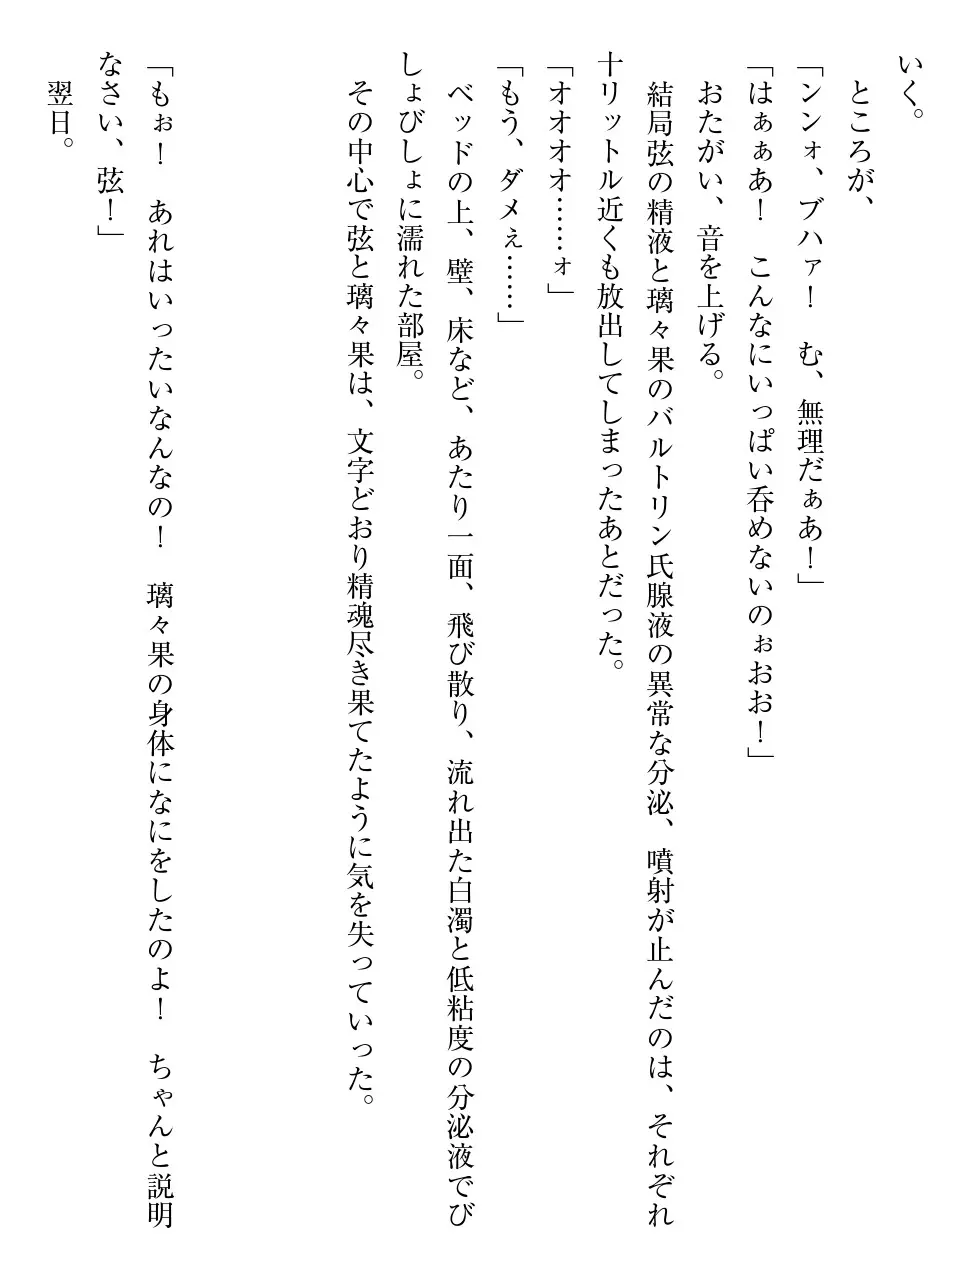 いく。
ところが、
「ンンォ、ブハァ！　む、無理だぁあ！」
「はぁぁあ！　こんなにいっぱい呑めないのぉおお！」
おたがい、音を上げる。
結局弦の精液と璃々果のバルトリン氏腺液の異常な分泌、噴射が止んだのは、それぞれ
十リットル近くも放出してしまったあとだった。
「オオオオ……ォ」
「もう、ダメぇ……」
ベッドの上、壁、床など、あたり一面、飛び散り、流れ出た白濁と低粘度の分泌液でび
しょびしょに濡れた部屋。
その中心で弦と璃々果は、文字どおり精魂尽き果てたように気を失っていった。
「もぉ！　あれはいったいなんなの！　璃々果の身体になにをしたのよ！　ちゃんと説明
なさい、弦！」
翌日。